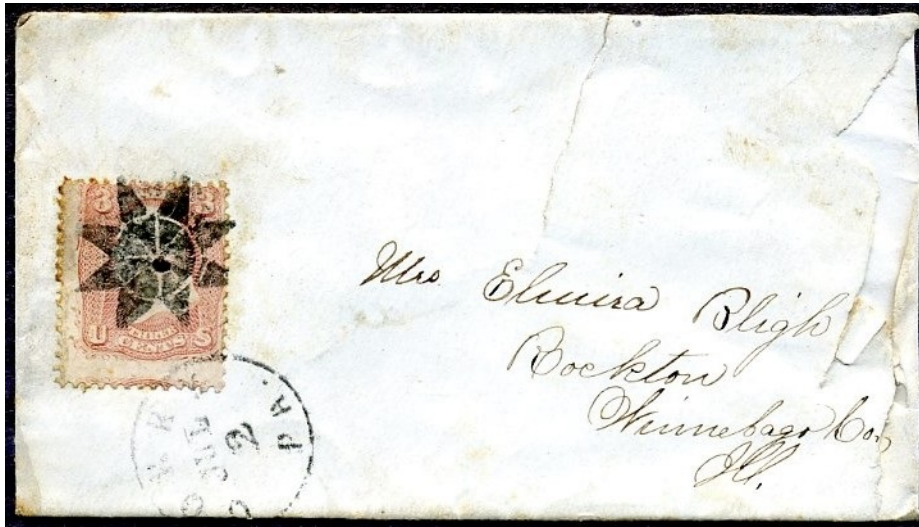 3 3
U S
CENTS
JUL
2
PA.
Mrs Elmira Bligh
Rockton
Winnebago Co,
Ill.